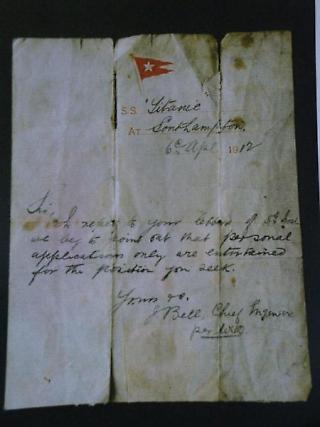 S.S. "Titanic"
AT Southampton,
6th Apl 1912
Sir,
In reply to your letter of 5th Inst
we beg to point out that personal
applications only are entertained
for the position you seek.
Yours &c.
J Bell, Chief Engineer
per